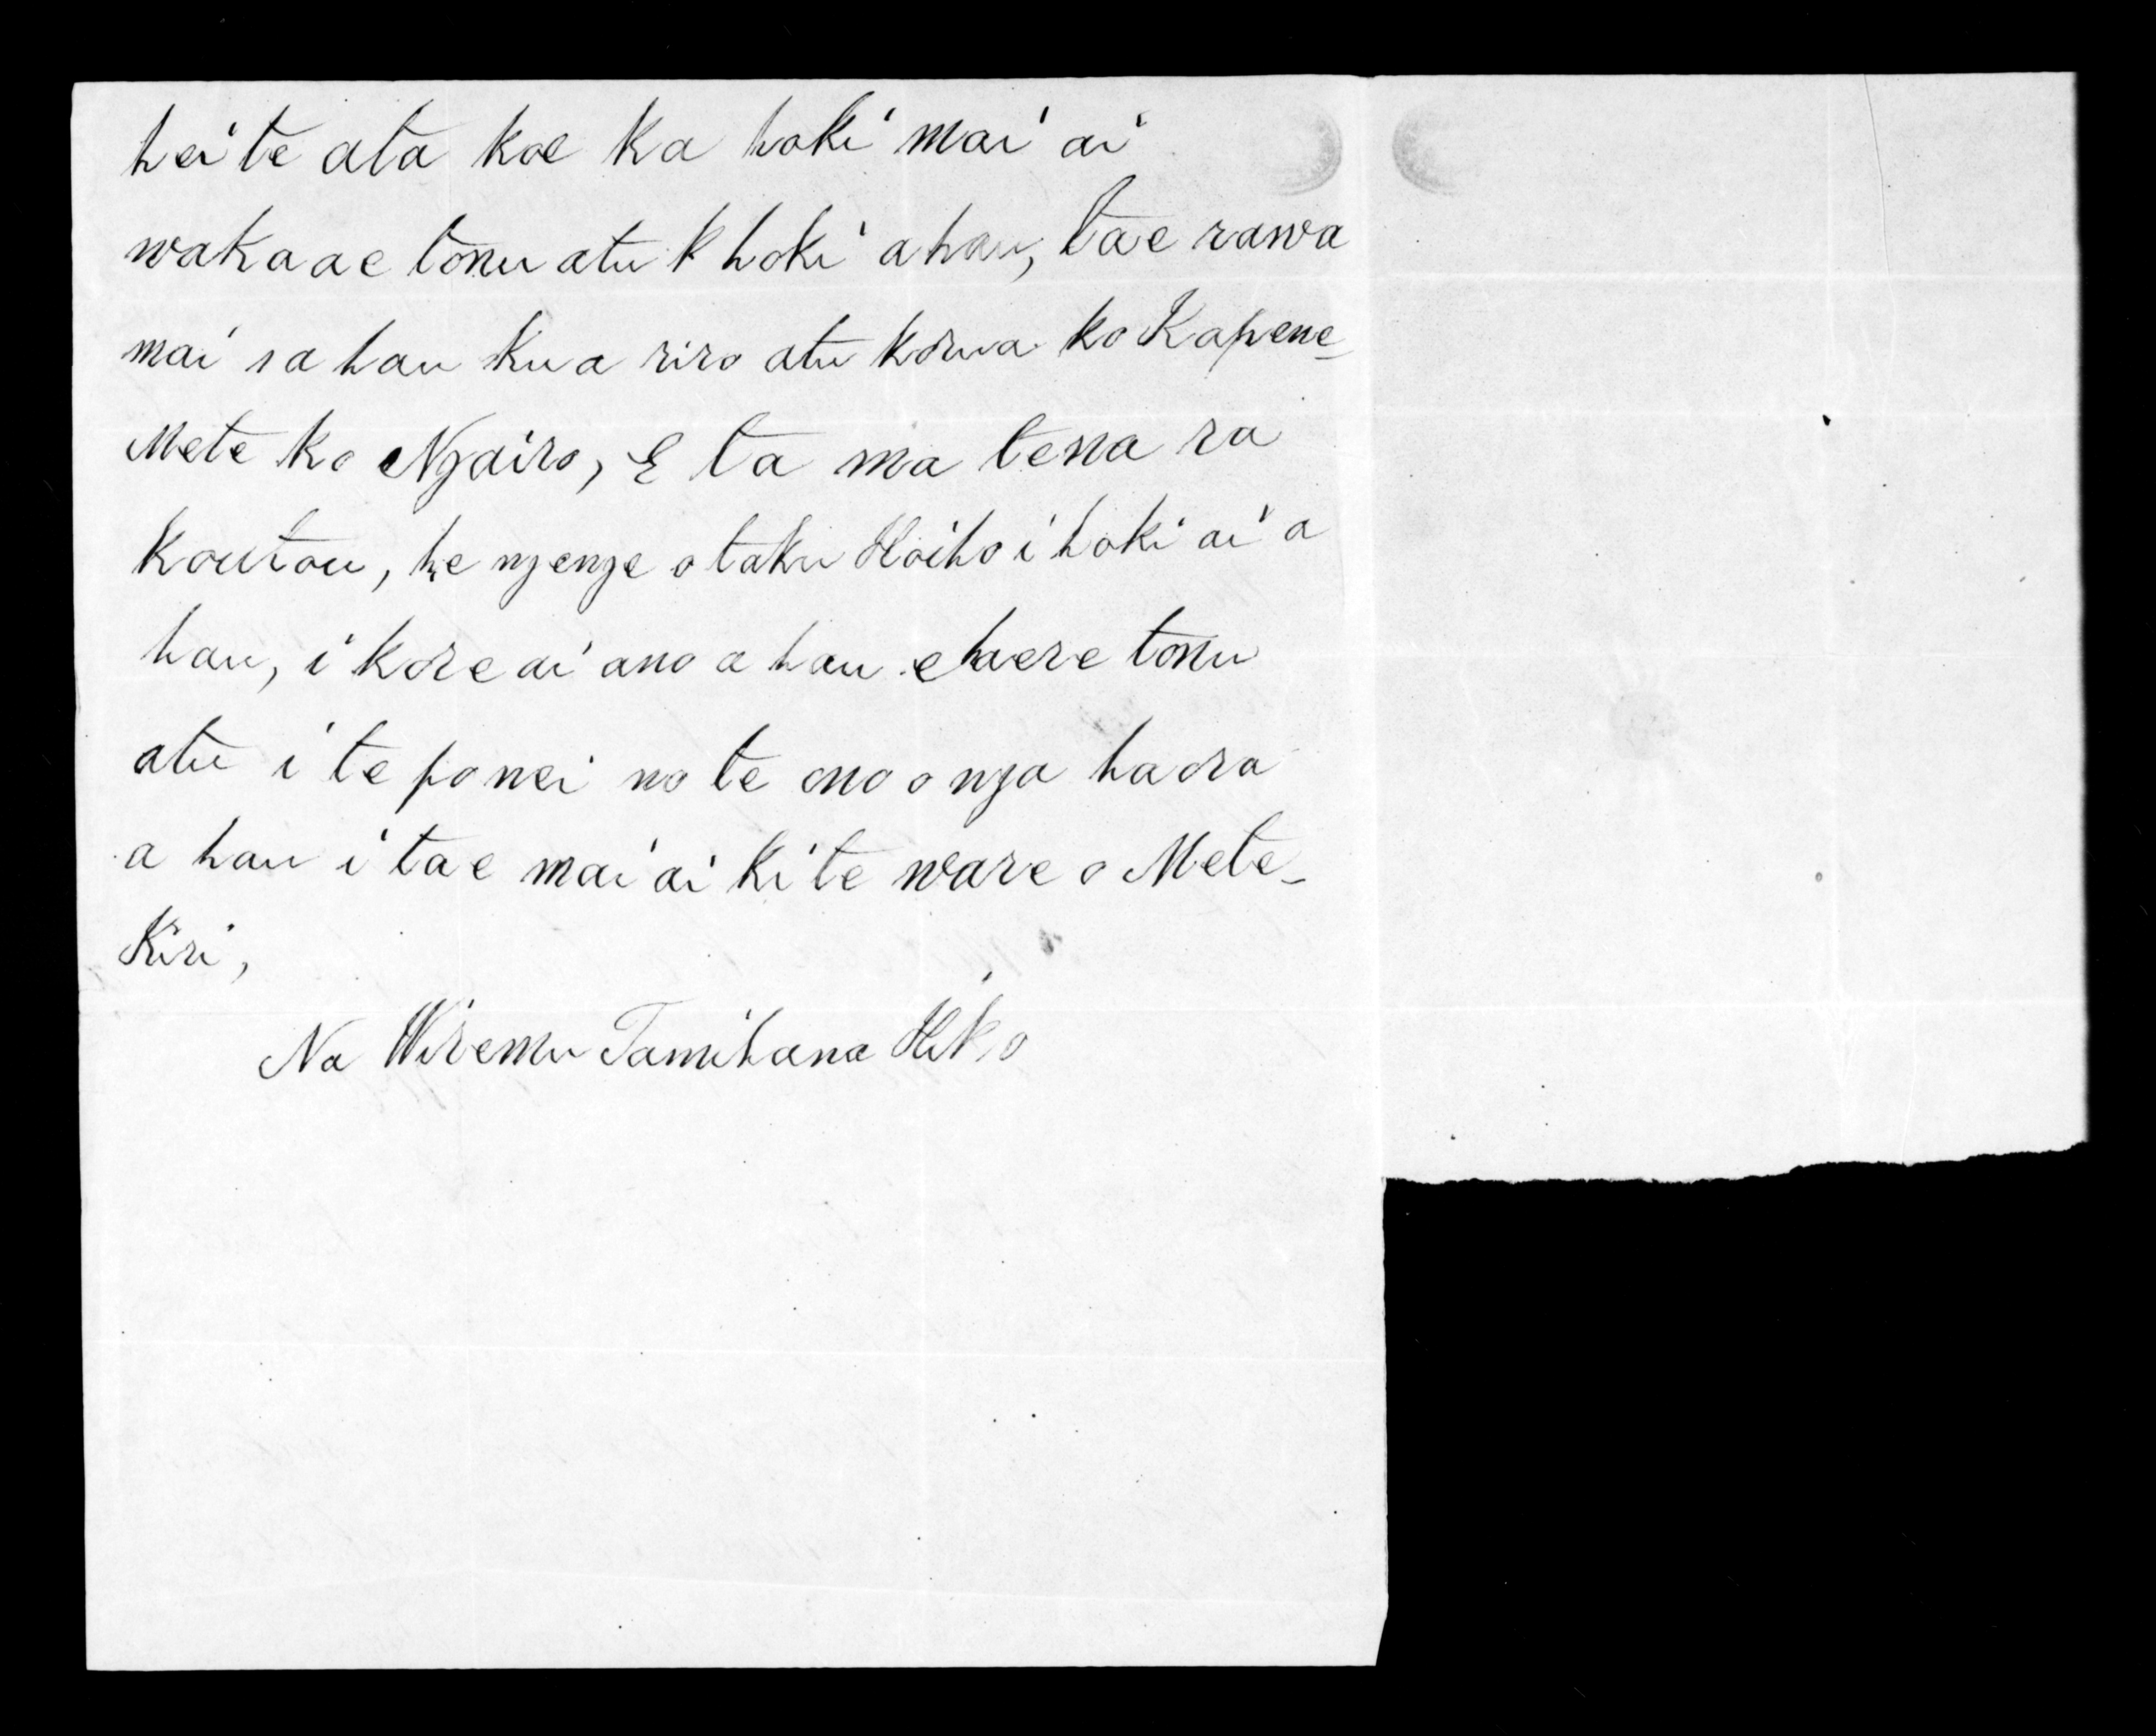 hei te ata koe ka hoki mai ai
wakaae tonu atu k hoki ahau, tae rawa
mai ahau kua riro atu korua ko Kapene-
Mete ko Ngairo, E ta ma tena ra
koutou, he ngenge o taku Hoiho i hoki ai a
hau, i kore ai ano a hau e haere tonu
atu i te po nei no te ono o nga haora
a hau i tae mai ai ki te ware o Mete-
Kiri,
Na Wiremu Tamihana Hiko